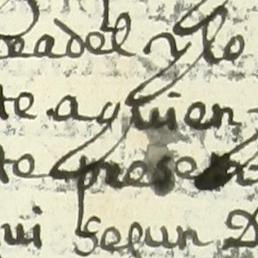 eadel y lo
te aquien
te presen
qui segun D